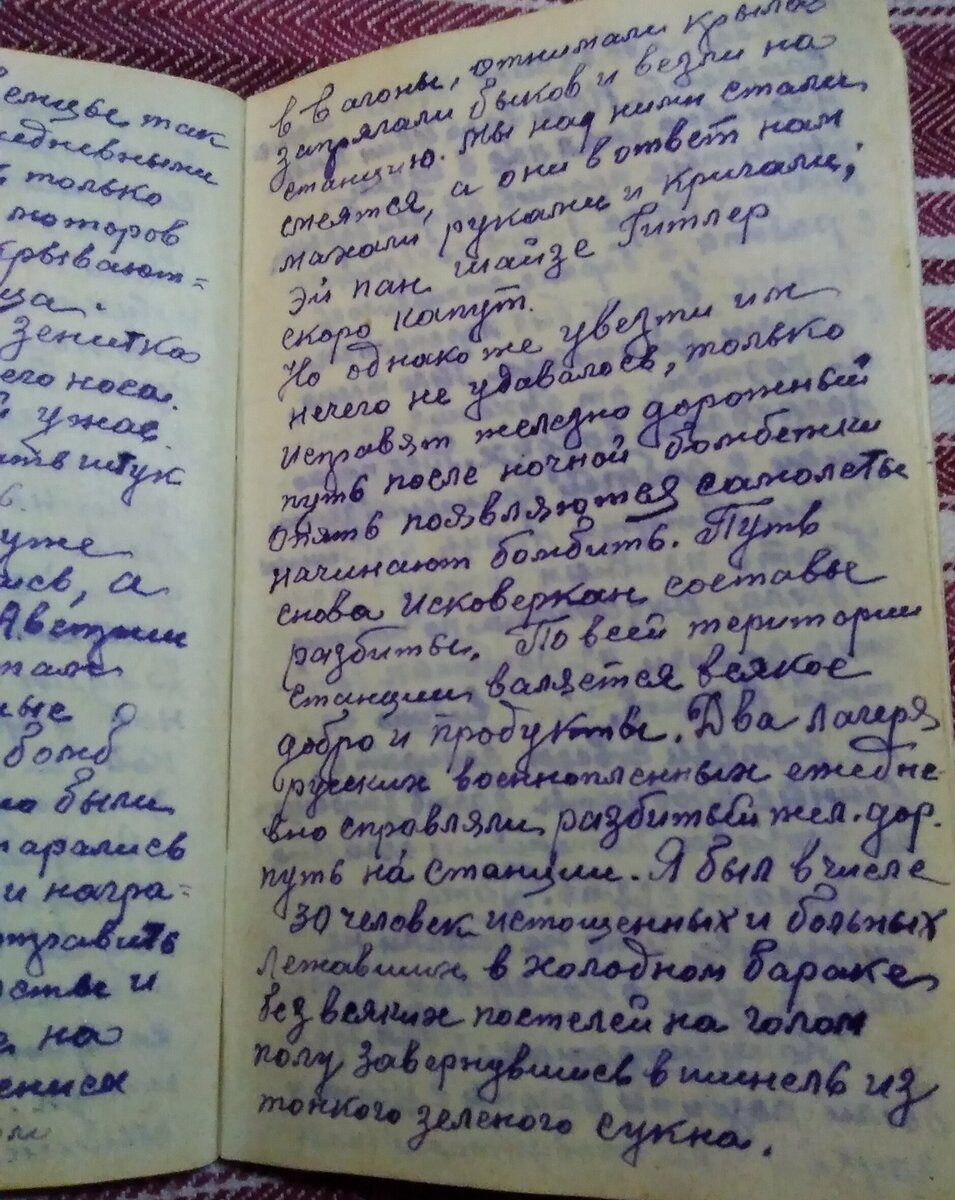 так
только
моторов
зенитка
его носа.
й ужас
штук
уже
а
о
бомб
были
и
на
в вагоны, отнимали крылья
запрягали быков и везли на
станцию. Мы над ними стали
смеятся, а они в ответ нам
махали руками и кричали;
эй пан шайзе Гитлер
скоро капут.
Но однако же увезти им
нечего не удавалось, только
исправят железно дорожный
путь после ночной бомбежки
опять появляются самолеты
начинают бомбить. Путь
снова исковеркан составы
разбиты. По всей територии
станции валяется всякое
добро и продукты. Два лагеря
русских военнопленных ежедне-
вно справляли разбитый жел. дор.
путь на станции. Я был в числе
30 человек истощенных и больных
лежавших в холодном бараке
без всяких постелей на голом
полу завернувшись в шинель из
тонкого зеленого сукна.